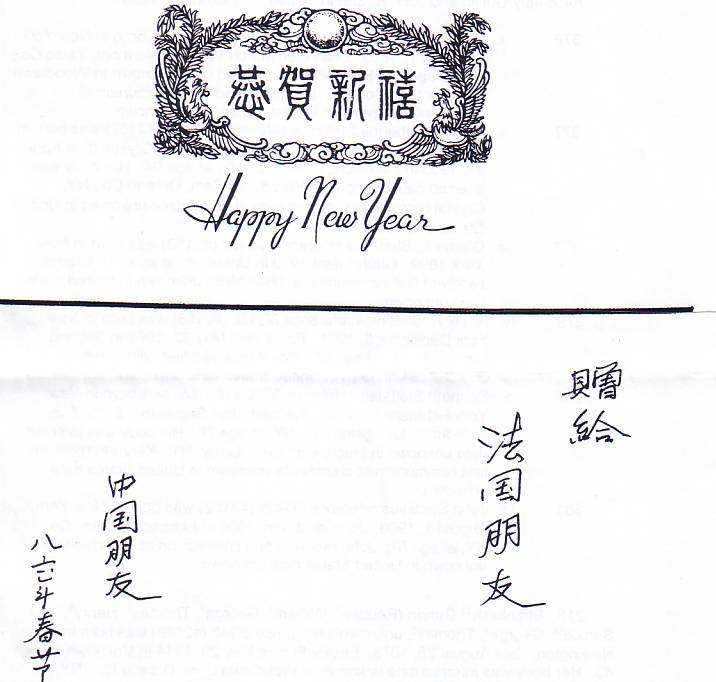 恭賀新禧
Happy New Year
贈給
法国朋友
中国朋友
八六年春节